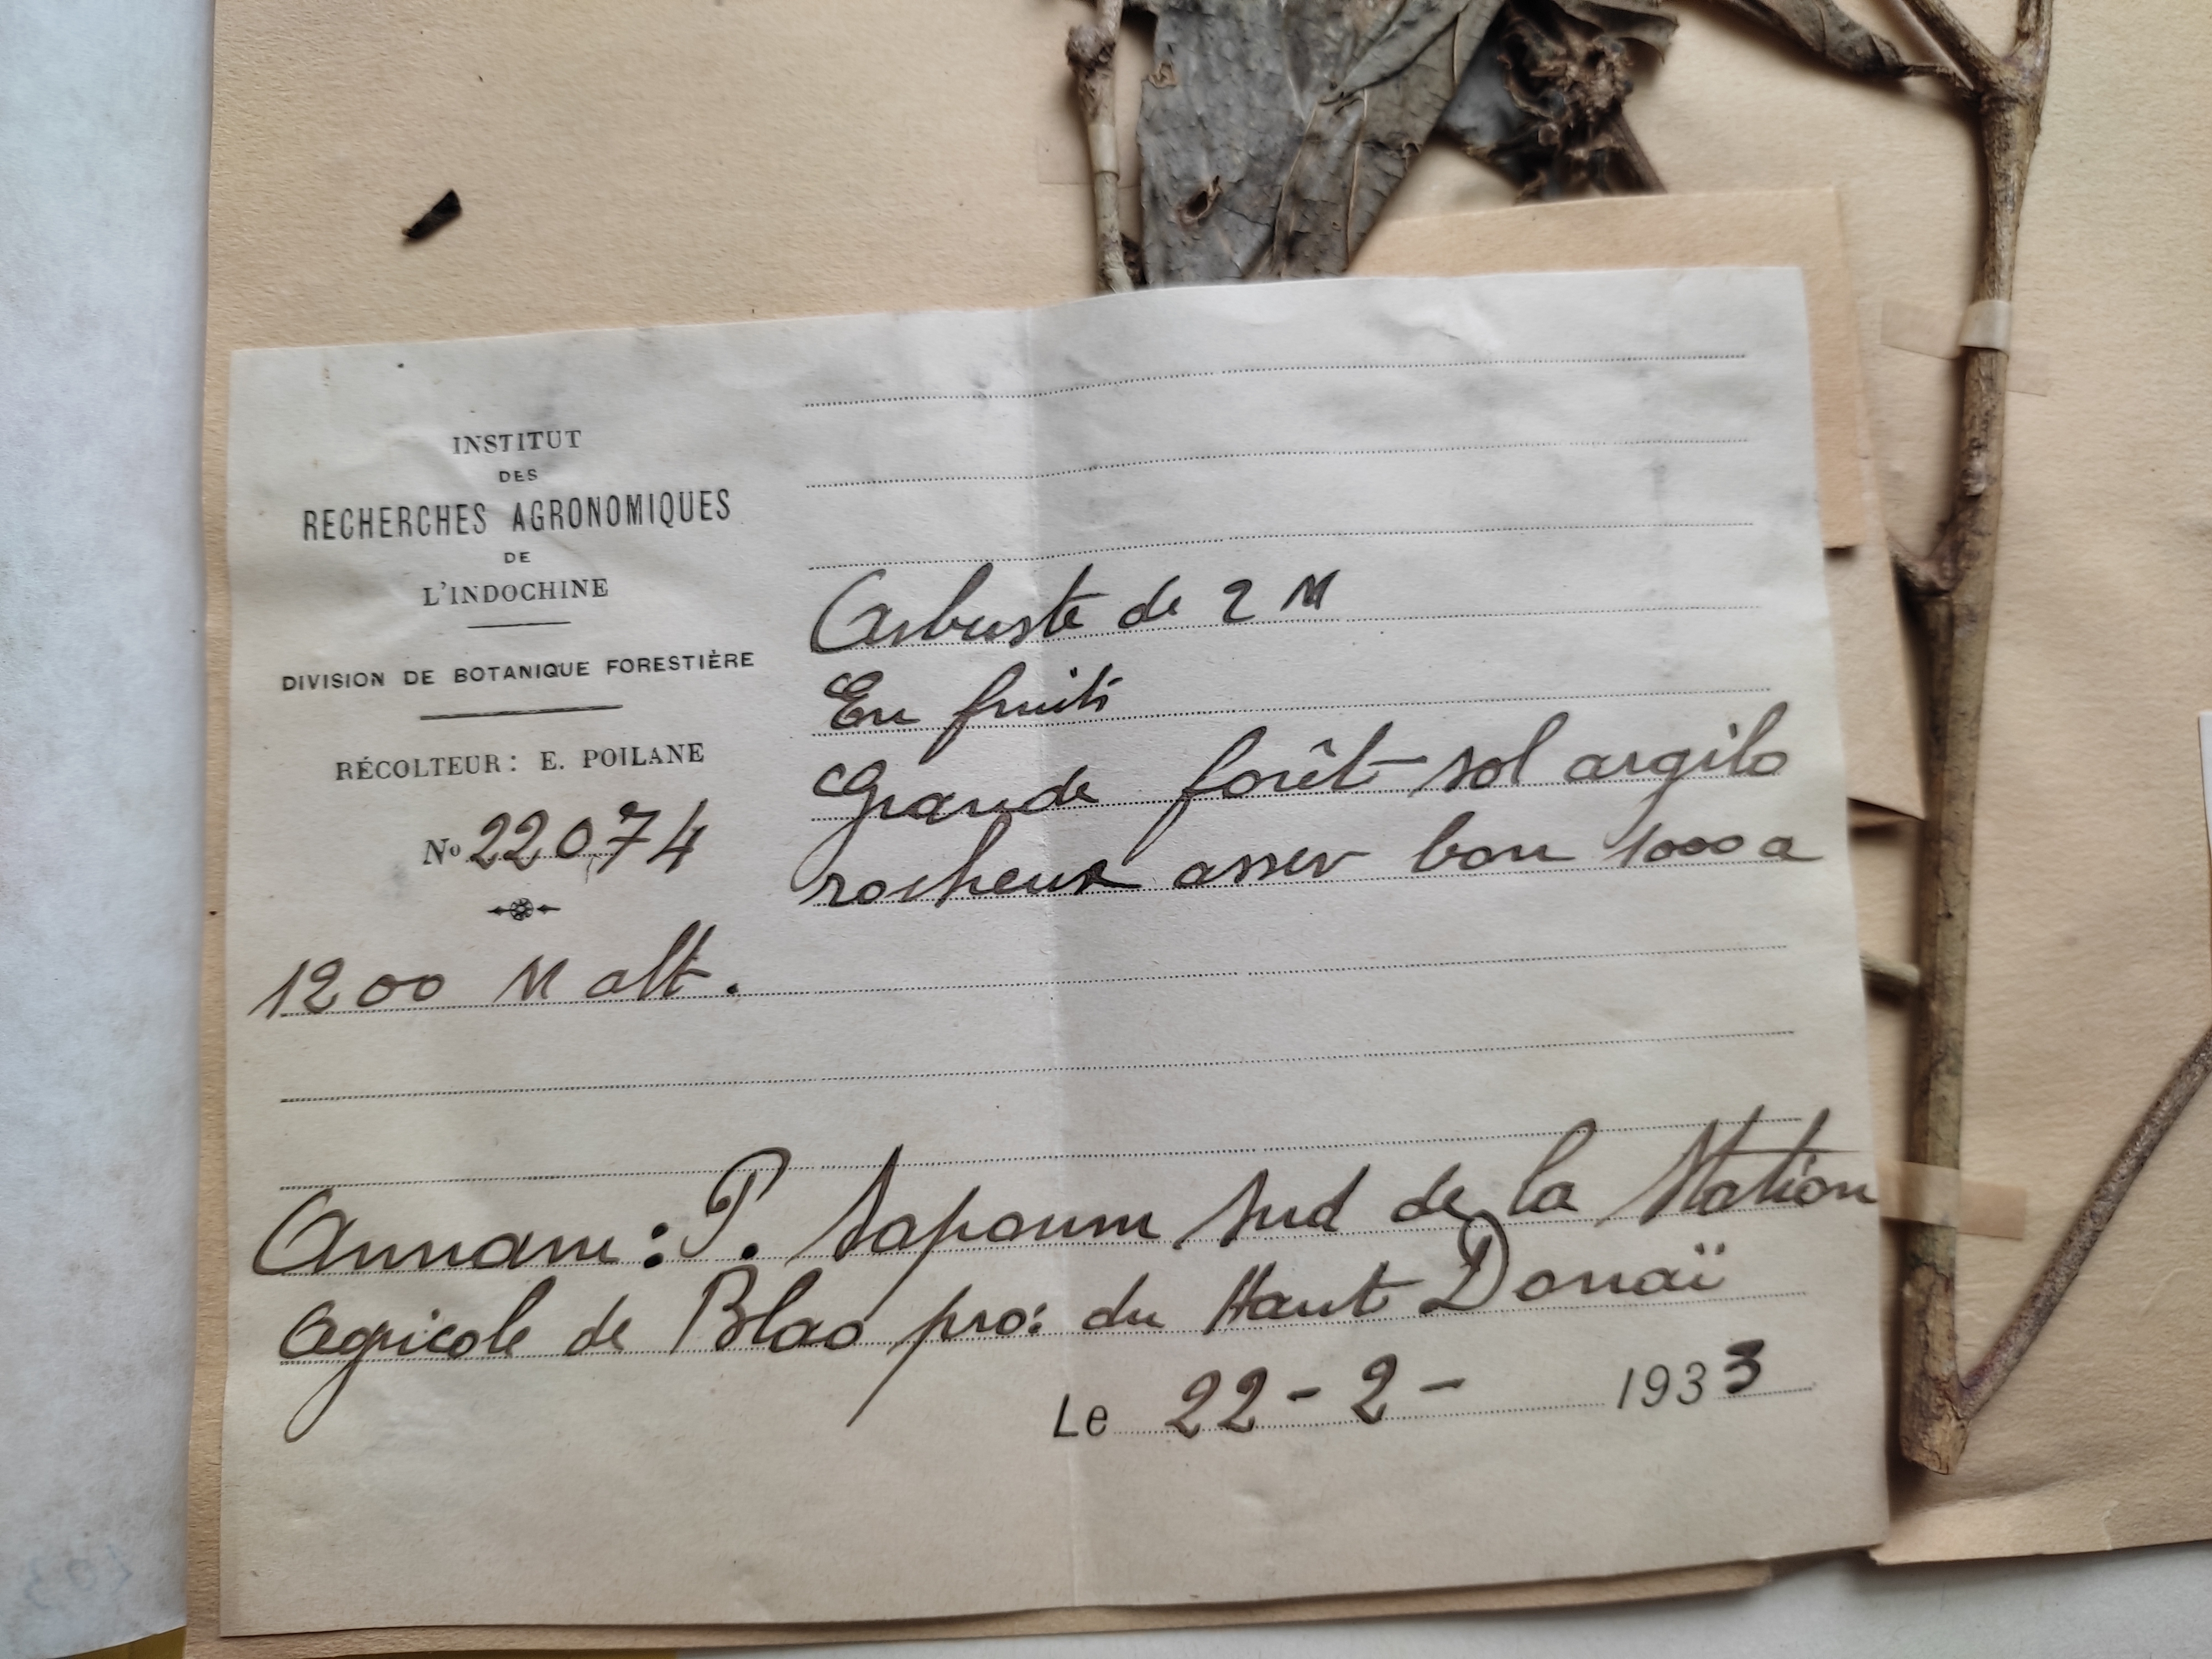 INSTITUT
DES
RECHERCHES AGRONOMIQUES
DE
L'INDOCHINE
DIVISION DE BOTANIQUE FORESTIÈRE
RÉCOLTEUR: E. POILANE
No 22074
Arbuste de 2 M
En fruits
Grande forêt sol argilo
rocheux assez bon 1000 a
1200 M alt.
Annam: P. Sapoum Sud de la Station
Agricole de Blao pro: du Haut Donaï
Le 22-2- 1933